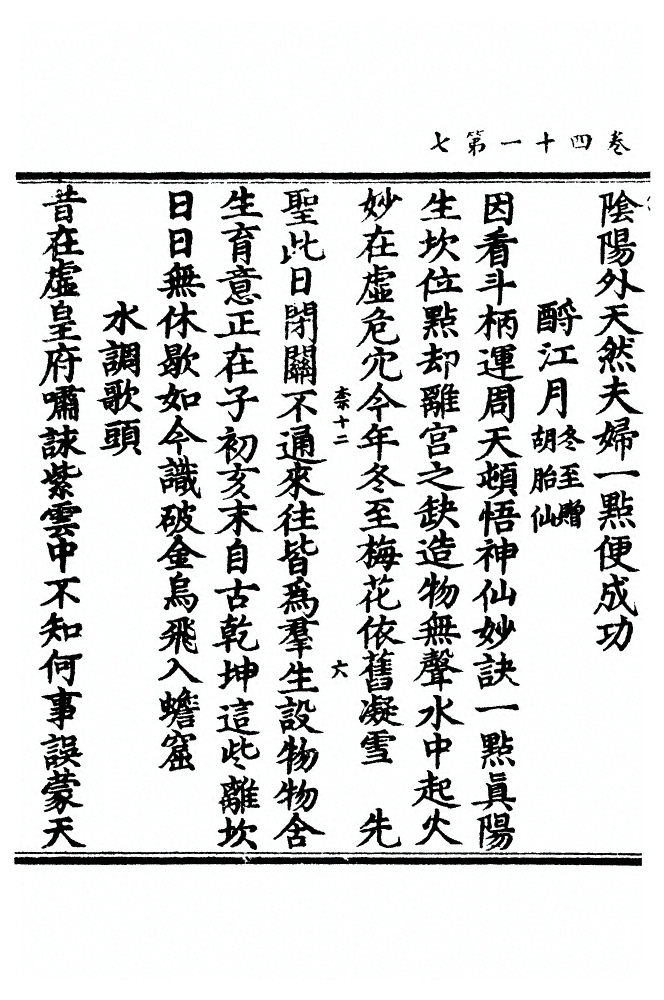 七第一十四卷
陰陽外天然夫婦一點便成功
酹江月冬至贈胡胎仙
因看斗柄運周天頓悟神仙妙訣一點眞陽
生坎位點却離宮之缺造物無聲水中起火
妙在虛危穴今年冬至梅花依舊凝雪　先
柰十二　六
聖此日閉關不通來往皆爲羣生設物物含
生育意正在子初亥末自古乾坤這些離坎
日日無休歇如今識破金烏飛入蟾窟
水調歌頭
昔在虛皇府嘯詠紫雲中不知何事誤蒙天